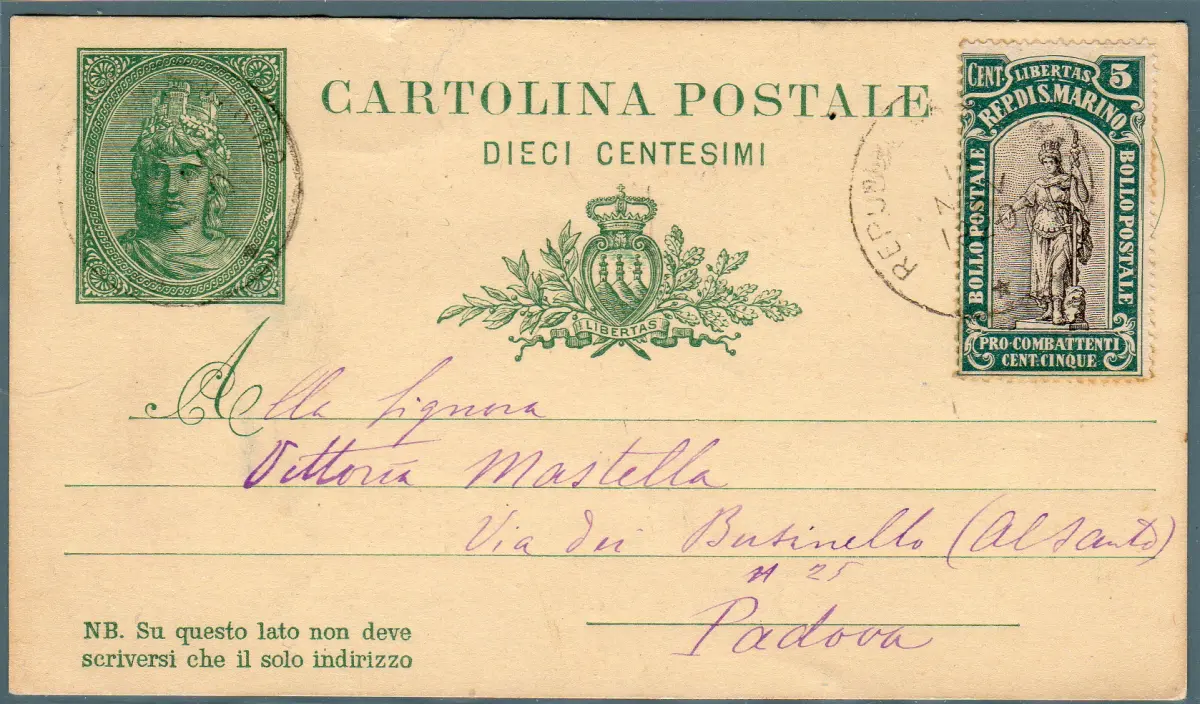 CARTOLINA POSTALE
DIECI CENTESIMI
LIBERTAS
CENT. LIBERTAS 5
REP. DI S. MARINO
BOLLO POSTALE
BOLLO POSTALE
PRO·COMBATTENTI
CENT. CINQUE
REPUB
Alla Signora
Vittoria Mastella
Via dei Businello (Al Santo)
N 25
Padova
NB. Su questo lato non deve
scriversi che il solo indirizzo